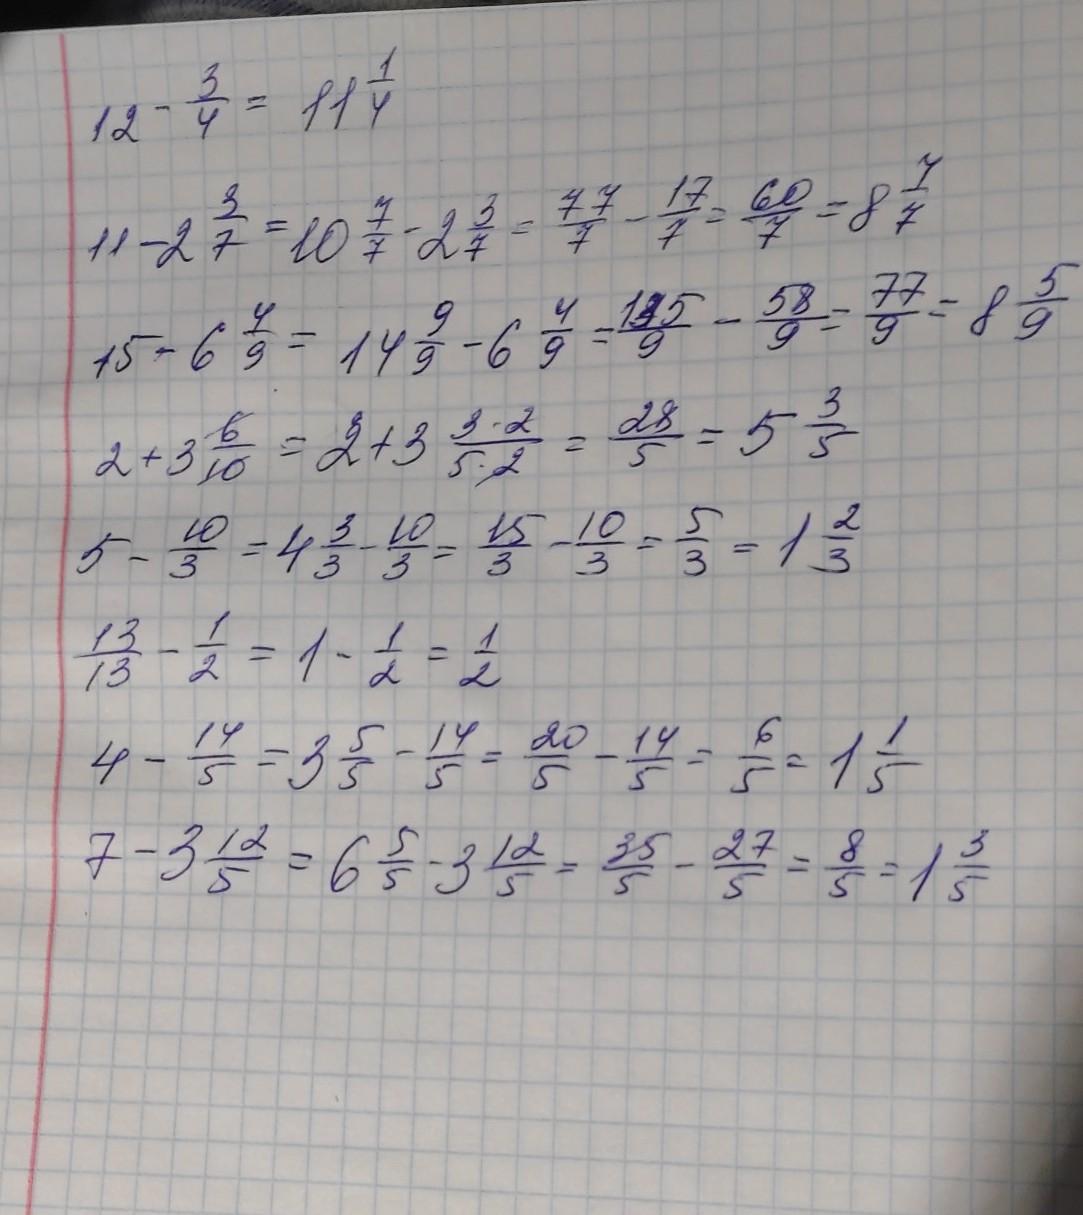 12 - 3/4 = 11 1/4
11 - 2 3/7 = 10 7/7 - 2 3/7 = 77/7 - 17/7 = 60/7 = 8 4/7
15 - 6 4/9 = 14 9/9 - 6 4/9 = 135/9 - 58/9 = 77/9 = 8 5/9
2 + 3 6/10 = 2 + 3 3·2/5·2 = 28/5 = 5 3/5
5 - 10/3 = 4 3/3 - 10/3 = 15/3 - 10/3 = 5/3 = 1 2/3
13/13 - 1/2 = 1 - 1/2 = 1/2
4 - 14/5 = 3 5/5 - 14/5 = 20/5 - 14/5 = 6/5 = 1 1/5
7 - 3 12/5 = 6 5/5 - 3 12/5 = 35/5 - 27/5 = 8/5 = 1 3/5